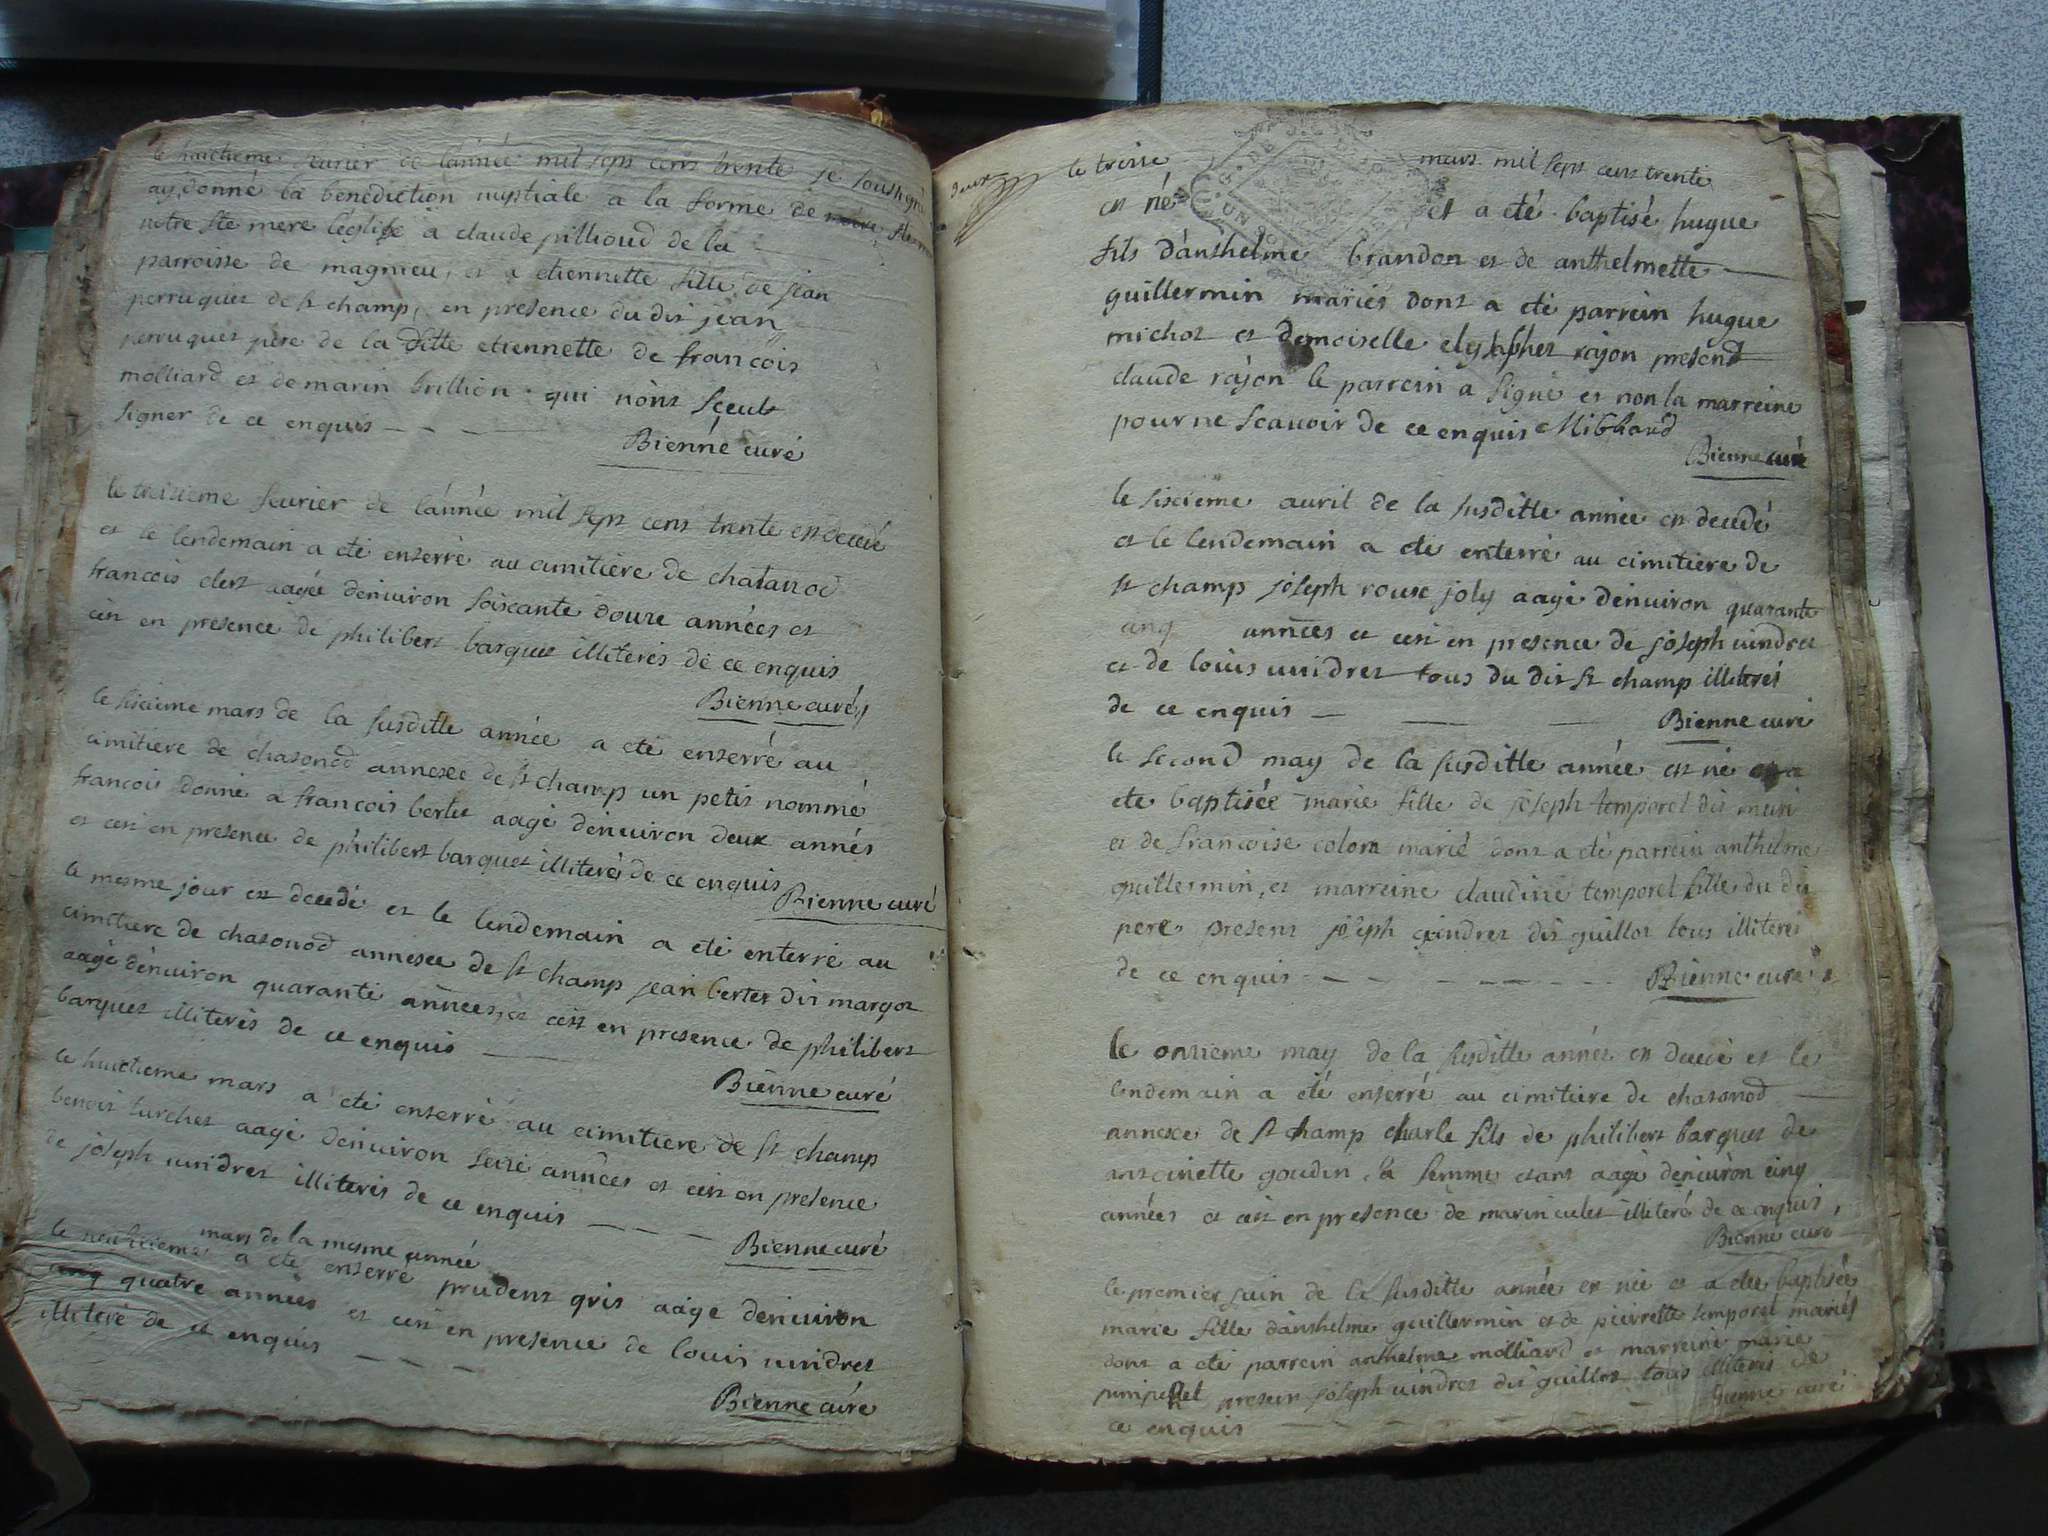 le huictieme feurier de l'année mil sept cens trente je soussigné
ay donné la benediction nuptiale a la forme de
notre ste mere l'église a claude pillioud de la
parroisse de magnieu, et a etiennette fille de jean
perruquet de st champ, en presence du dit jean
perruquet pere de la ditte etiennette de francois
molliard et de marin brillion qui n'ont sceut
signer de ce enquis
Bienne curé
le treisieme feurier de l'année mil sept cens trente est decedé
et le lendemain a eté enterré au cimitiere de chatanod
francois clert aagée denuiron soiscante douze années et
cen en presence de philibert barquet illiterés de ce enquis
Bienne curé
le siscieme mars de la susditte année a eté enterré au
cimitiere de chasonod annexee de st champ un petit nommé
francois donné a francois bertet aagé denuiron deux annés
et cest en presence de philibert barquet illiteré de ce enquis
Bienne curé
le mesme jour est decedé et le lendemain a eté enterré au
cimitiere de chasonod annexee de st champ jean bertet dit margot
aagé denuiron quarante années, et cest en presence de philibert
barquet illiterés de ce enquis
Bienne curé
le huictieme mars a eté enterré au cimitiere de st champ
benoit turchet aagé denuiron seize années et cest en presence
de joseph uindret illiterés de ce enquis
Bienne curé
mars de la mesme année
le neufuieme a eté enterré prudent gris aagé denuiron
cinq quatre années et cest en presence de louis uindret
illiteré de ce enquis
Bienne curé
deux
le treise mars mil sept cens trente
est né et a eté baptisé hugue
fils d'anthelme brandon et de anthelmette
guillermin mariés dont a eté parrein hugue
michot et demoiselle elysabhet rajon present
claude rajon le parrein a signé et non la marreine
pour ne scauoir de ce enquis
Bienne curé
le siscieme auril de la susditte année est decedé
et le lendemain a eté enterré au cimitiere de
st champ joseph rouse joly aagé denuiron quarante
cinq années et cest en presence de joseph uindret
et de louis uindret tous du dit st champ illiterés
de ce enquis
Bienne curé
le second may de la susditte année est né et a
ete baptisée marie fille de joseph temporel dit muri
et de francoise colom marié dont a eté parrein anthelme
guillermin, et marreine claudine temporel fille du dit
pere present joseph uindret dit guillot tous illiterés
de ce enquis
Bienne curé
le onsieme may de la susditte année est decedé et le
lendemain a eté enterré au cimitiere de chasonod
annexe de st champ charle fils de philibert barquet de
antoinette goudin sa femme etant aagé denuiron cinq
années et cest en presence de marin culet illiteré de ce enquis,
Bienne curé
le premier juin de la susditte année est née et a eté baptisée
marie fille d'anthelme guillermin et de pierrette temporel mariés
dont a eté parrein anthelme molliard et marreine marie
present joseph uindret dit guillot tous illiterés de
ce enquis
Bienne curé